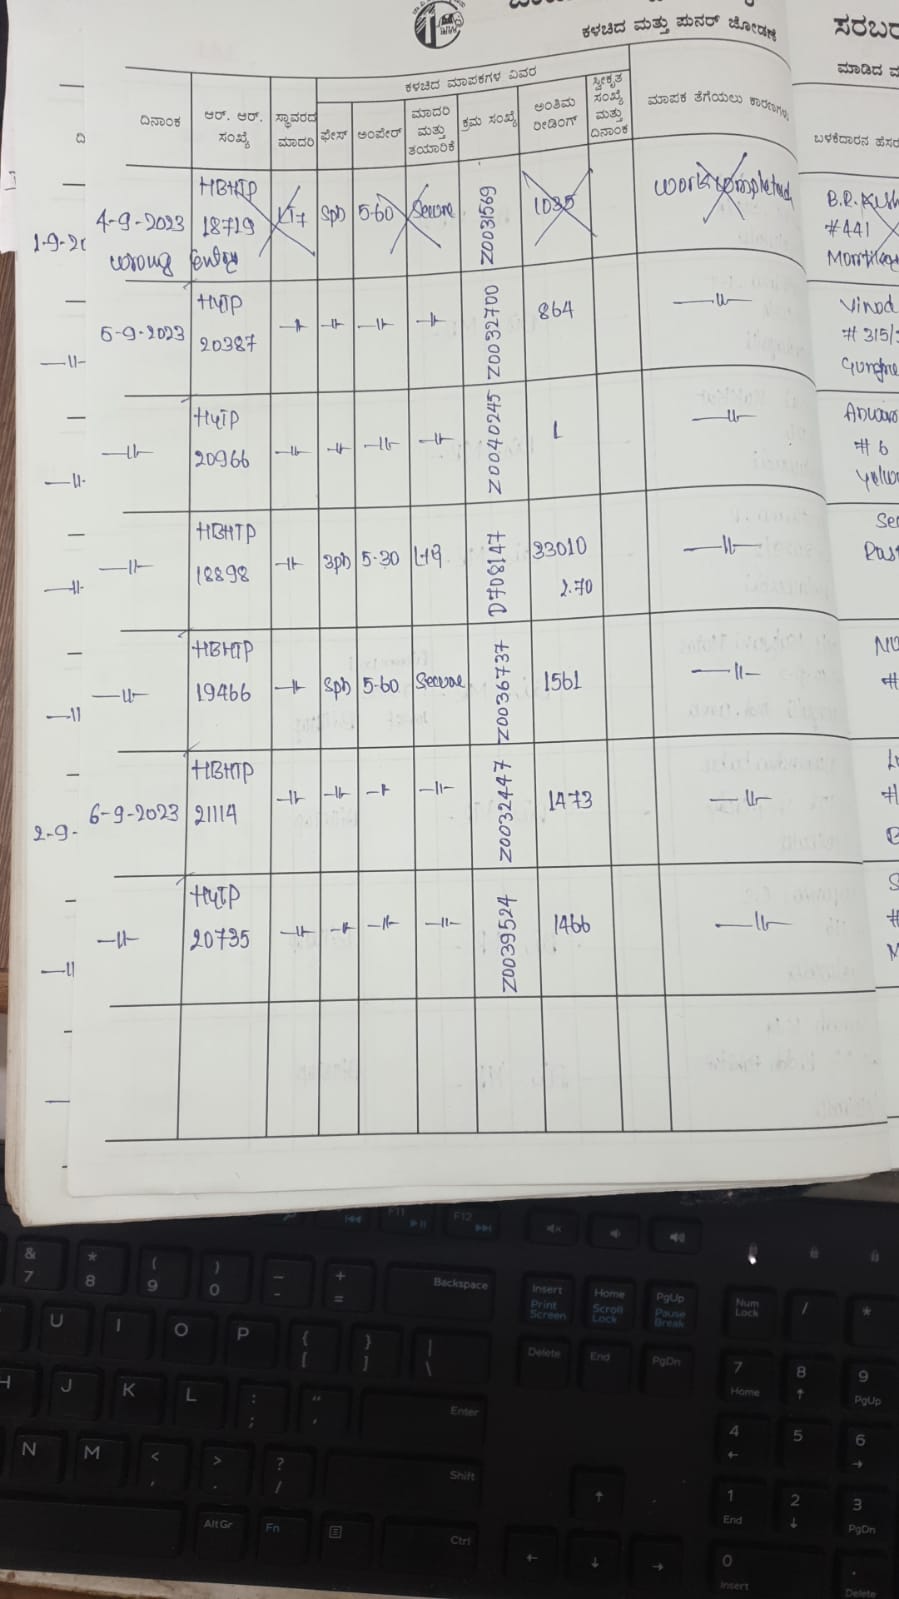 ಕಳಚಿದ ಮತ್ತು ಪುನರ್ ಜೋಡಣೆ
ಸರಬರ
ಮಾಡಿದ ವ
ಕಳಚಿದ ಮಾಪಕಗಳ ವಿವರ
ದಿನಾಂಕ ಆರ್. ಆರ್. ಸಂಖ್ಯೆ ಸ್ಥಾವರದ ಮಾದರಿ ಫೇಸ್ ಅಂಪೇರ್ ಮಾದರಿ ಮತ್ತು ತಯಾರಿಕೆ ಕ್ರಮ ಸಂಖ್ಯೆ ಅಂತಿಮ ರೀಡಿಂಗ್ ಸ್ವೀಕೃತ ಸಂಖ್ಯೆ ಮತ್ತು ದಿನಾಂಕ ಮಾಪಕ ತೆಗೆಯಲು ಕಾರಣಗಳು ಬಳಕೆದಾರನ ಹೆಸರ
4-9-2023 HBHTP 18719 LT7 Sph 5-60 Secure Z0031569 1035 work completed B.R. #441
wrong entry
1-9-20
5-9-2023 HYTP 20387 -11- -11- -11- -11- Z0032700 864 -11- Vinod # 315/
-11- HYTP 20966 -11- -11- -11- -11- Z0040245 1 -11- # 6
-11- HBHTP 18898 -11- 3ph 5-30 L+G D7708147 33010 2.70 -11-
-11- HBHTP 19466 -11- Sph 5-60 Secure Z0036737 1561 -11-
6-9-2023 HBHTP 21114 -11- -11- -11- -11- Z0032447 1473 -11-
2-9-
-11- HYTP 20735 -11- -11- -11- -11- Z0039524 1466 -11-
F11 F12
& 7 * 8 ( 9 ) 0 _ - + = Backspace Insert Print Screen Home Scroll Lock PgUp Pause Break Num Lock / *
U I O P { [ } ] | \ Delete End PgDn 7 Home 8 ↑ 9 PgUp
H J K L : ; " ' Enter 4 ← 5 6 →
N M < , > . ? / Shift ↑ 1 End 2 ↓ 3 PgDn
Alt Gr Fn Ctrl ← ↓ → 0 Insert . Delete